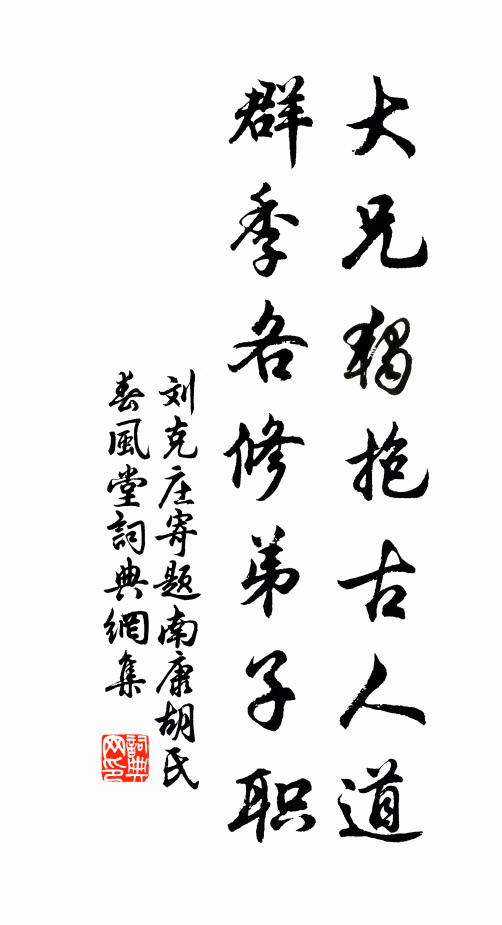 大兄独抱古人道
群季各修弟子职
刘克庄寄题南康胡氏
春风堂詞典網集
詞典
网印